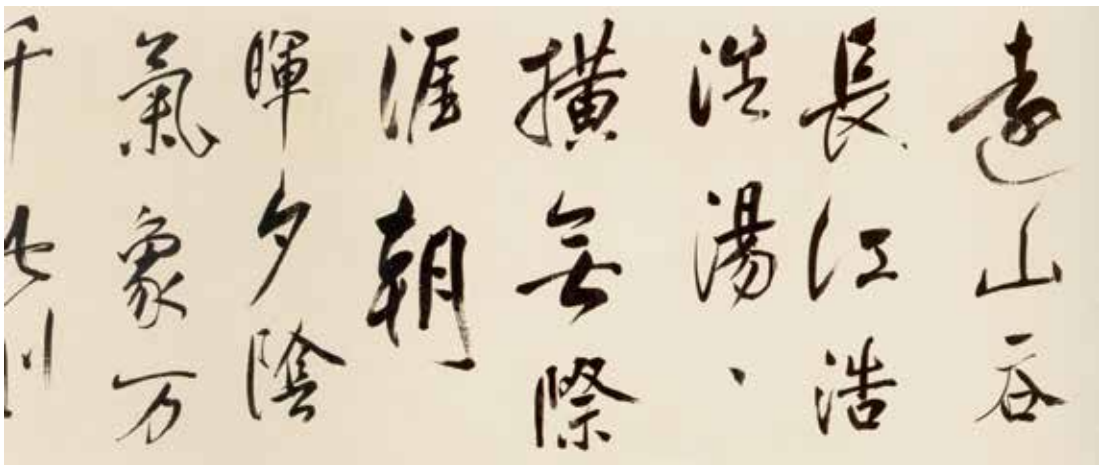 遠山吞
長江浩
浩湯、
横無際
涯朝
暉夕陰
氣象万
千此則